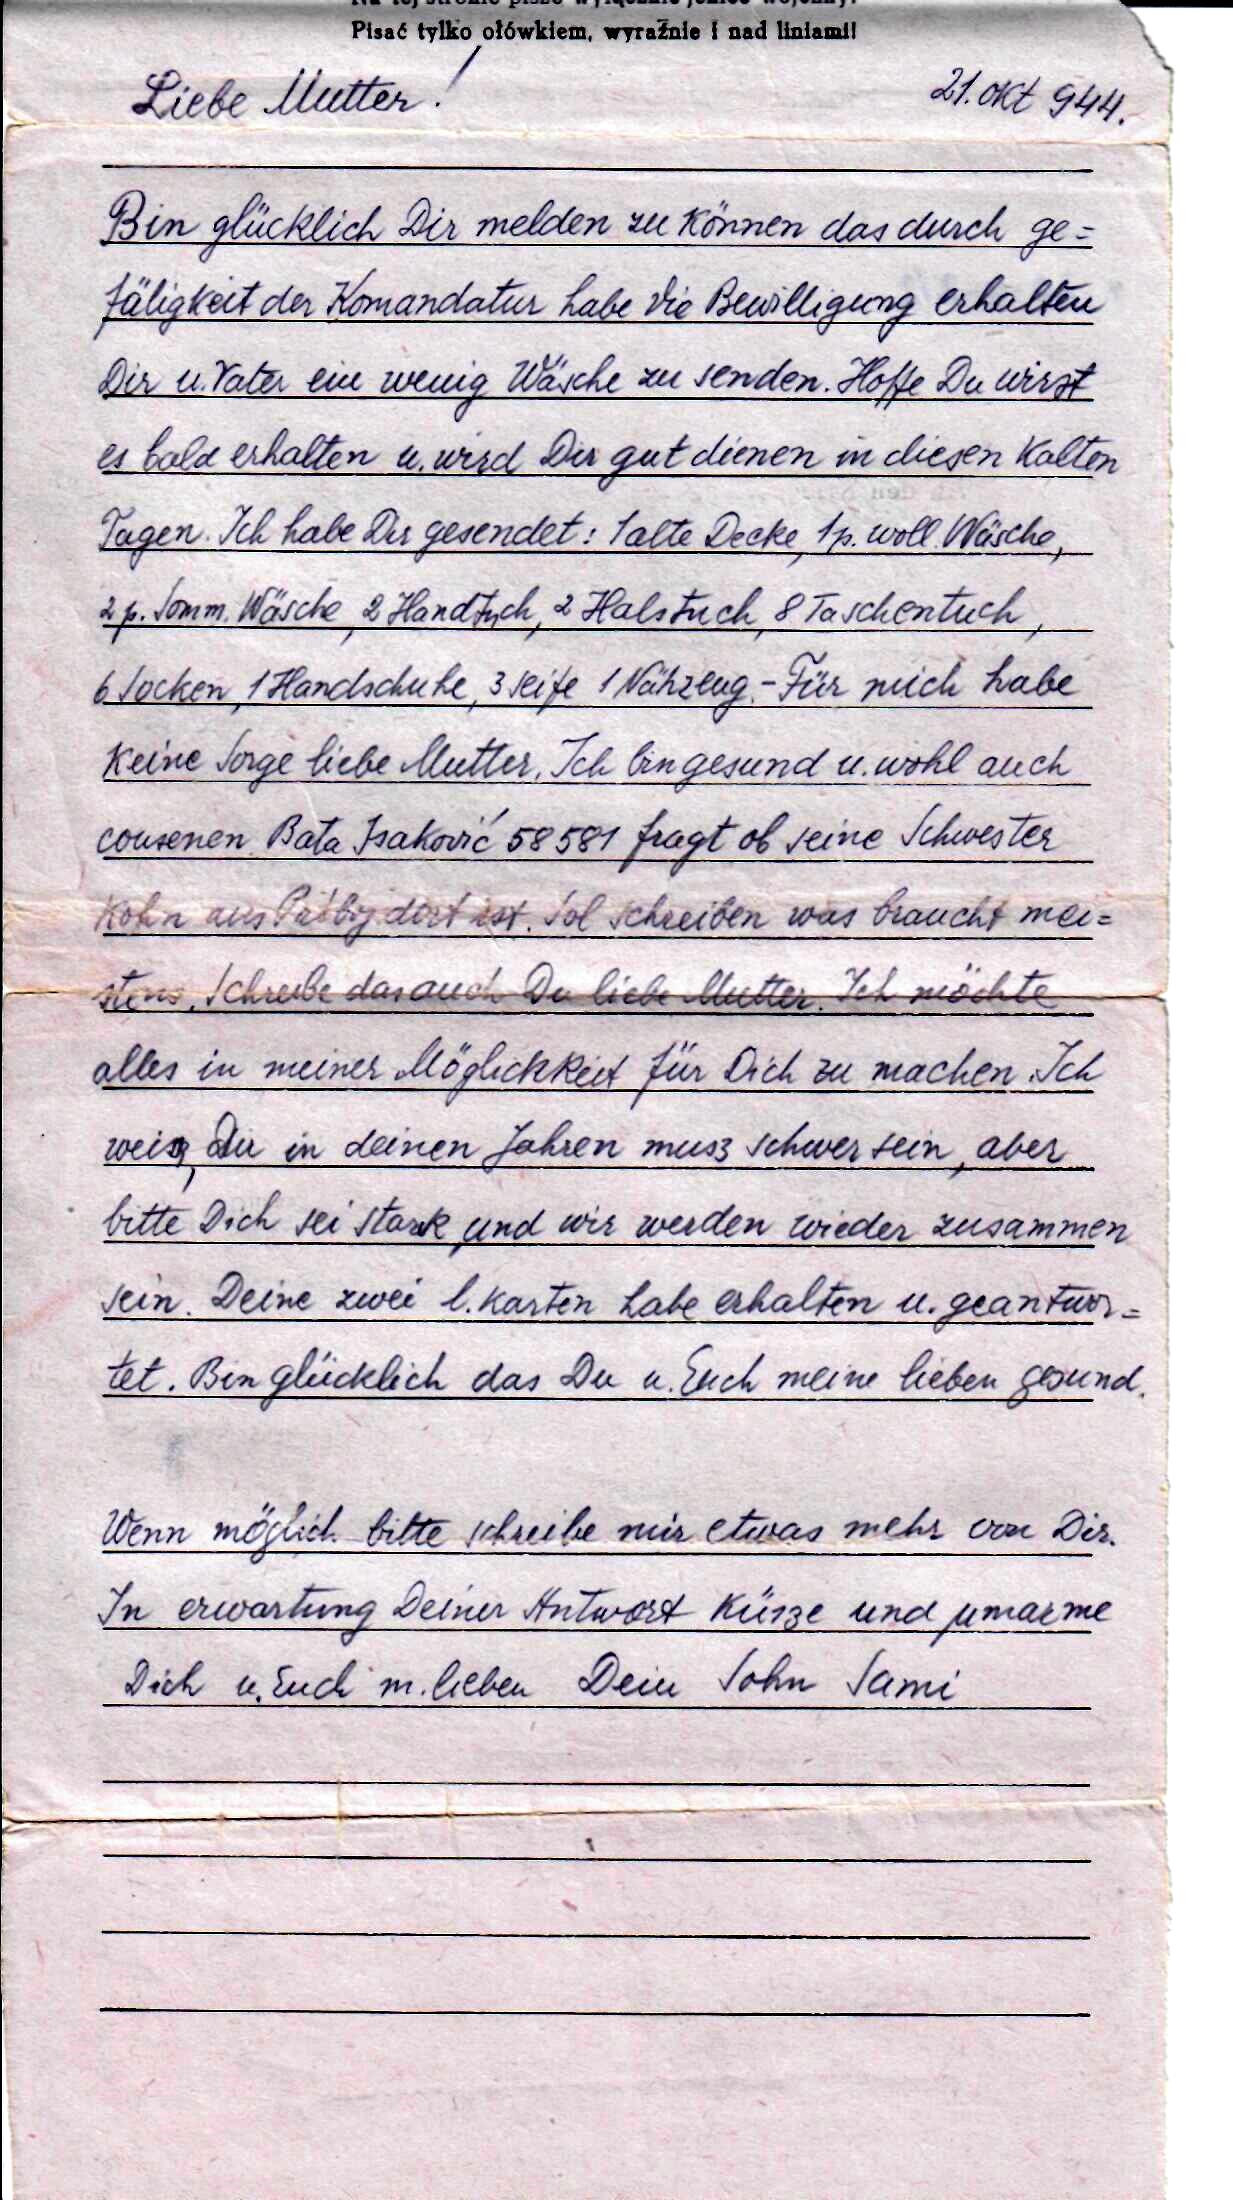 Na tej stronie pisze wyłącznie jeniec wojenny!
Pisać tylko ołówkiem, wyraźnie i nad liniami!
Liebe Mutter! 21. okt 944.
Bin glücklich Dir melden zu können das durch ge=
fäligkeit der Komandatur habe die Bewilligung erhalten
Dir u. Vater ein wenig Wäsche zu senden. Hoffe Du wirst
es bald erhalten u. wird Dir gut dienen in diesen Kalten
Tagen. Ich habe Dir gesendet: 1 alte Decke, 1 p. woll. Wäsche,
2 p. Somm. Wäsche, 2 Handtuch, 2 Halstuch, 8 Taschentuch,
6 Socken, 1 Handschuhe, 3 seife 1 Nähzeug. - Für mich habe
Keine Sorge liebe Mutter. Ich bin gesund u. wohl auch
cousenen Bata Isaković 58581 fragt ob seine Schwester
Kohn aus dort ist. Sol schreiben was braucht mei=
stens. Schreibe das auch Du liebe Mutter. Ich möchte
alles in meiner Möglichkeit für Dich zu machen. Ich
weis, Dir in deinen Jahren musz schwer sein, aber
bitte Dich sei stark und wir werden wieder zusammen
sein. Deine zwei l. Karten habe erhalten u. geantwor=
tet. Bin glücklich das Du u. Euch meine lieben gesund.
Wenn möglich bitte schreibe mir etwas mehr von Dir.
In erwartung Deiner Antwort Küsze und umarme
Dich u. Euch m. lieben Dein Sohn Sami